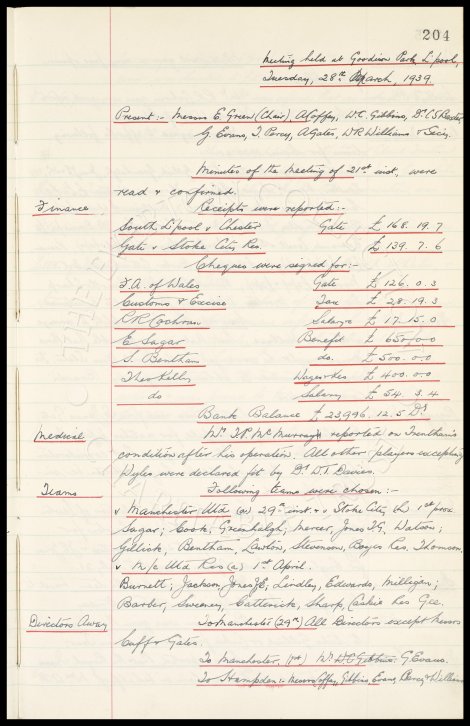 204
Meeting held at Goodison Park, L'pool,
Tuesday, 28th March, 1939.
Present:- Messrs E. Green (Chair), A Coffey, W.C. Gibbins, Dr C.S Baxter
G. Evans, T. Percy, A Gates, W R Williams & Secy.
Minutes of the Meeting of 21st inst., were
read & confirmed.
Finance
Receipts were reported:-
South L'pool v Chester Gate £ 168. 19. 7
Gate v Stoke City Res. £ 139. 7. 6
Cheques were signed for:-
F.A. of Wales Gate £ 126. 0. 3
Customs & Excise Tax £ 28. 19. 3
R R Cochran Salary £ 17. 15. 0
E Sagar Benefit £ 650.0.0
S. Bentham do. £ 500.0.0
Theo Kelly Wages &es £ 400.0.0
do Salary £ 54. 3. 4
Bank Balance £ 23996. 12. 5 Dr.
Medical
Mr. McMurray reported on Trentham's
condition after his operation. All other players excepting
Wyles were declared fit by Dr. D.T. Davies.
Teams
Following teams were chosen:-
v Manchester Utd (a) 29th inst. & v Stoke City (h) 1st prox
Sagar; Cook, Greenhalgh; Mercer, Jones T.G. Watson;
Gillick, Bentham, Lawton, Stevenson, Boyes Res. Thomson
v M/c Utd Res (a) 1st April.
Burnett; Jackson, Jones J E; Lindley, Edwards, Milligan;
Barber, Sweeney, Catterick, Sharp, Caskie Res Gee.
Directors Away
To Manchester (29th) All Directors except Messrs
Cuff & Gates.
To Manchester, (1st) Mr. W C Gibbins. G. Evans.
To Hampden:- Messrs Coffey, Gibbins Evans, Percy & Williams